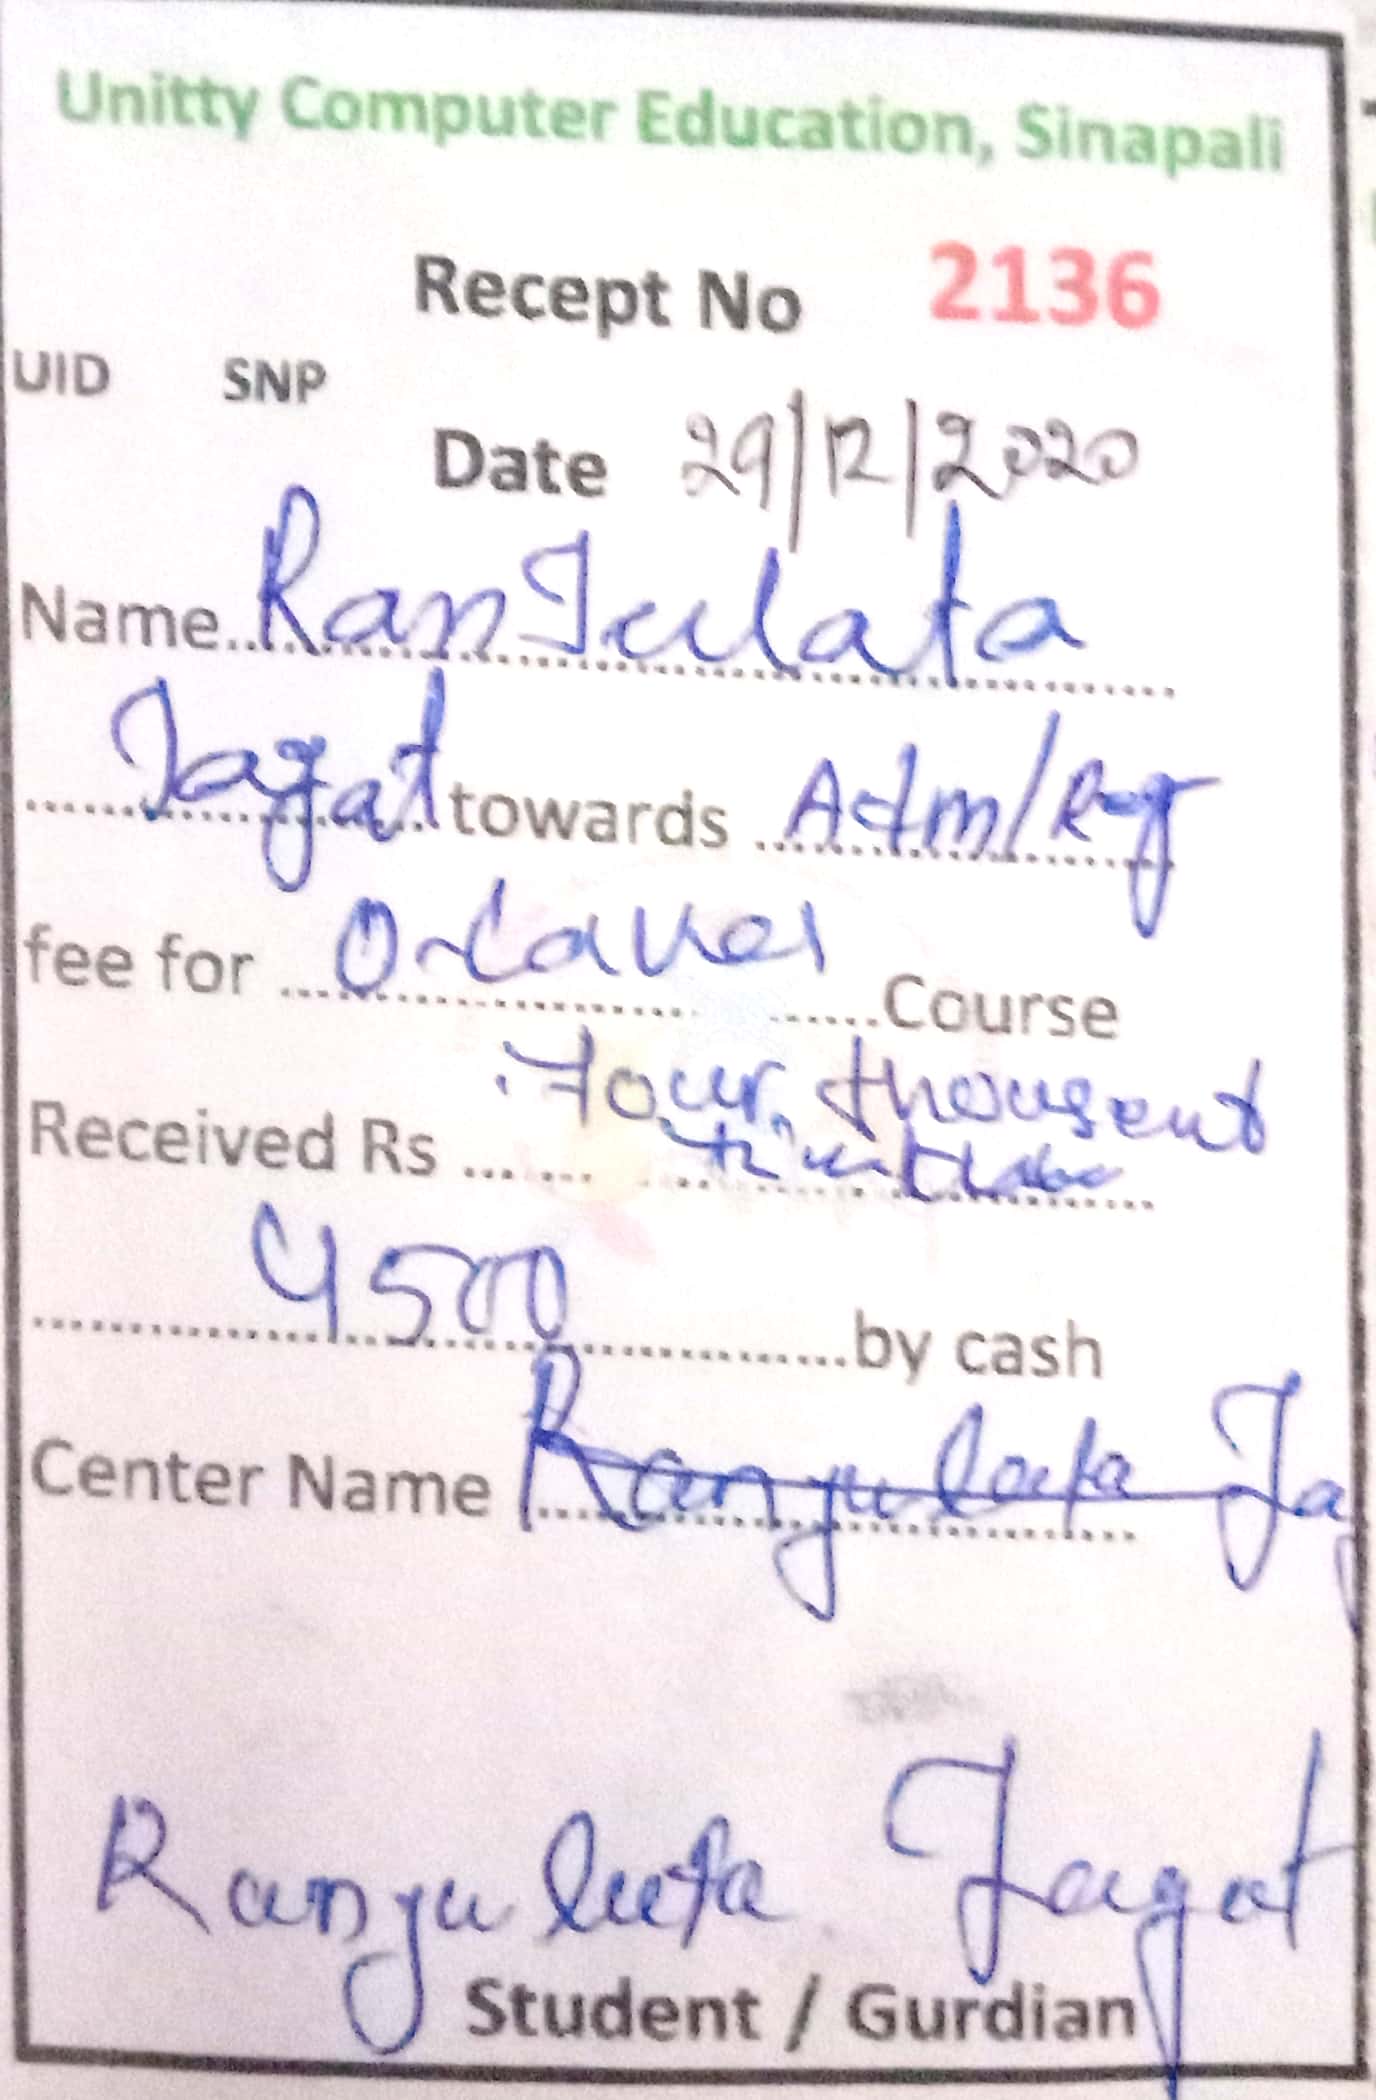 Unitty Computer Education, Sinapali
Recept No 2136
UID SNP
Date 29/12/2020
Name..RanJulata
Jagat towards Adm/Reg
fee for O-Lavel Course
Four thousent
Received Rs
4500 by cash
Center Name Ranjulata Ja
Ranjulata Jagat
Student / Gurdian